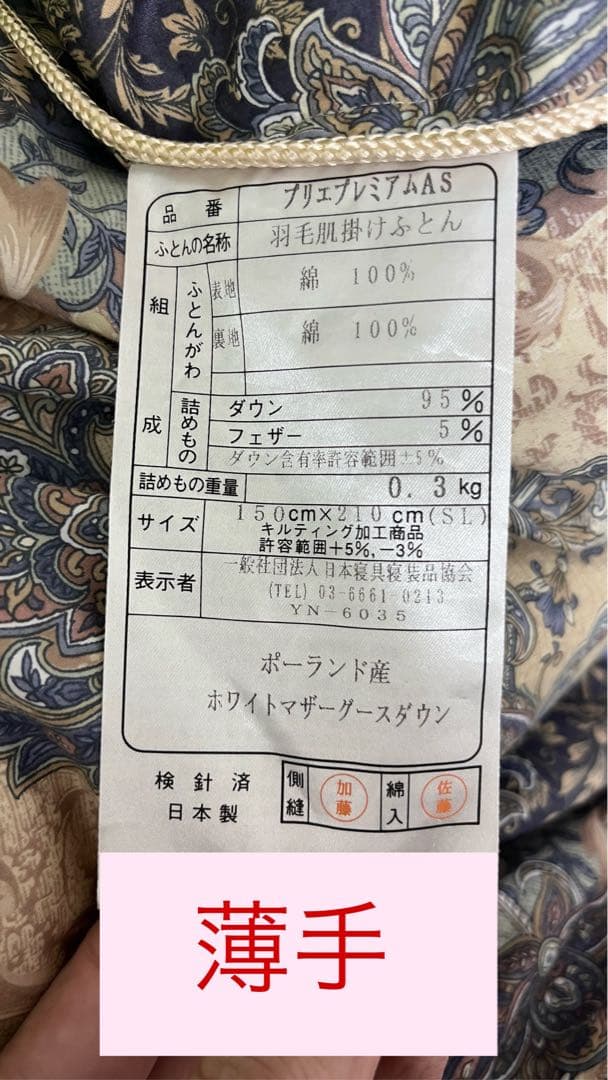 品番 プリエプレミアムAS
ふとんの名称 羽毛肌掛けふとん
組成 ふとんがわ 表地 綿 100%
裏地 綿 100%
詰めもの ダウン 95%
フェザー 5%
ダウン含有率許容範囲±5%
詰めもの重量 0.3kg
サイズ 150cm×210cm(SL)
キルティング加工商品
許容範囲+5%,-3%
表示者 一般社団法人日本寝具寝装品協会
(TEL) 03-6661-0213
YN-6035
ポーランド産
ホワイトマザーグースダウン
検針済 側縫 加藤 綿入 佐藤
日本製
薄手